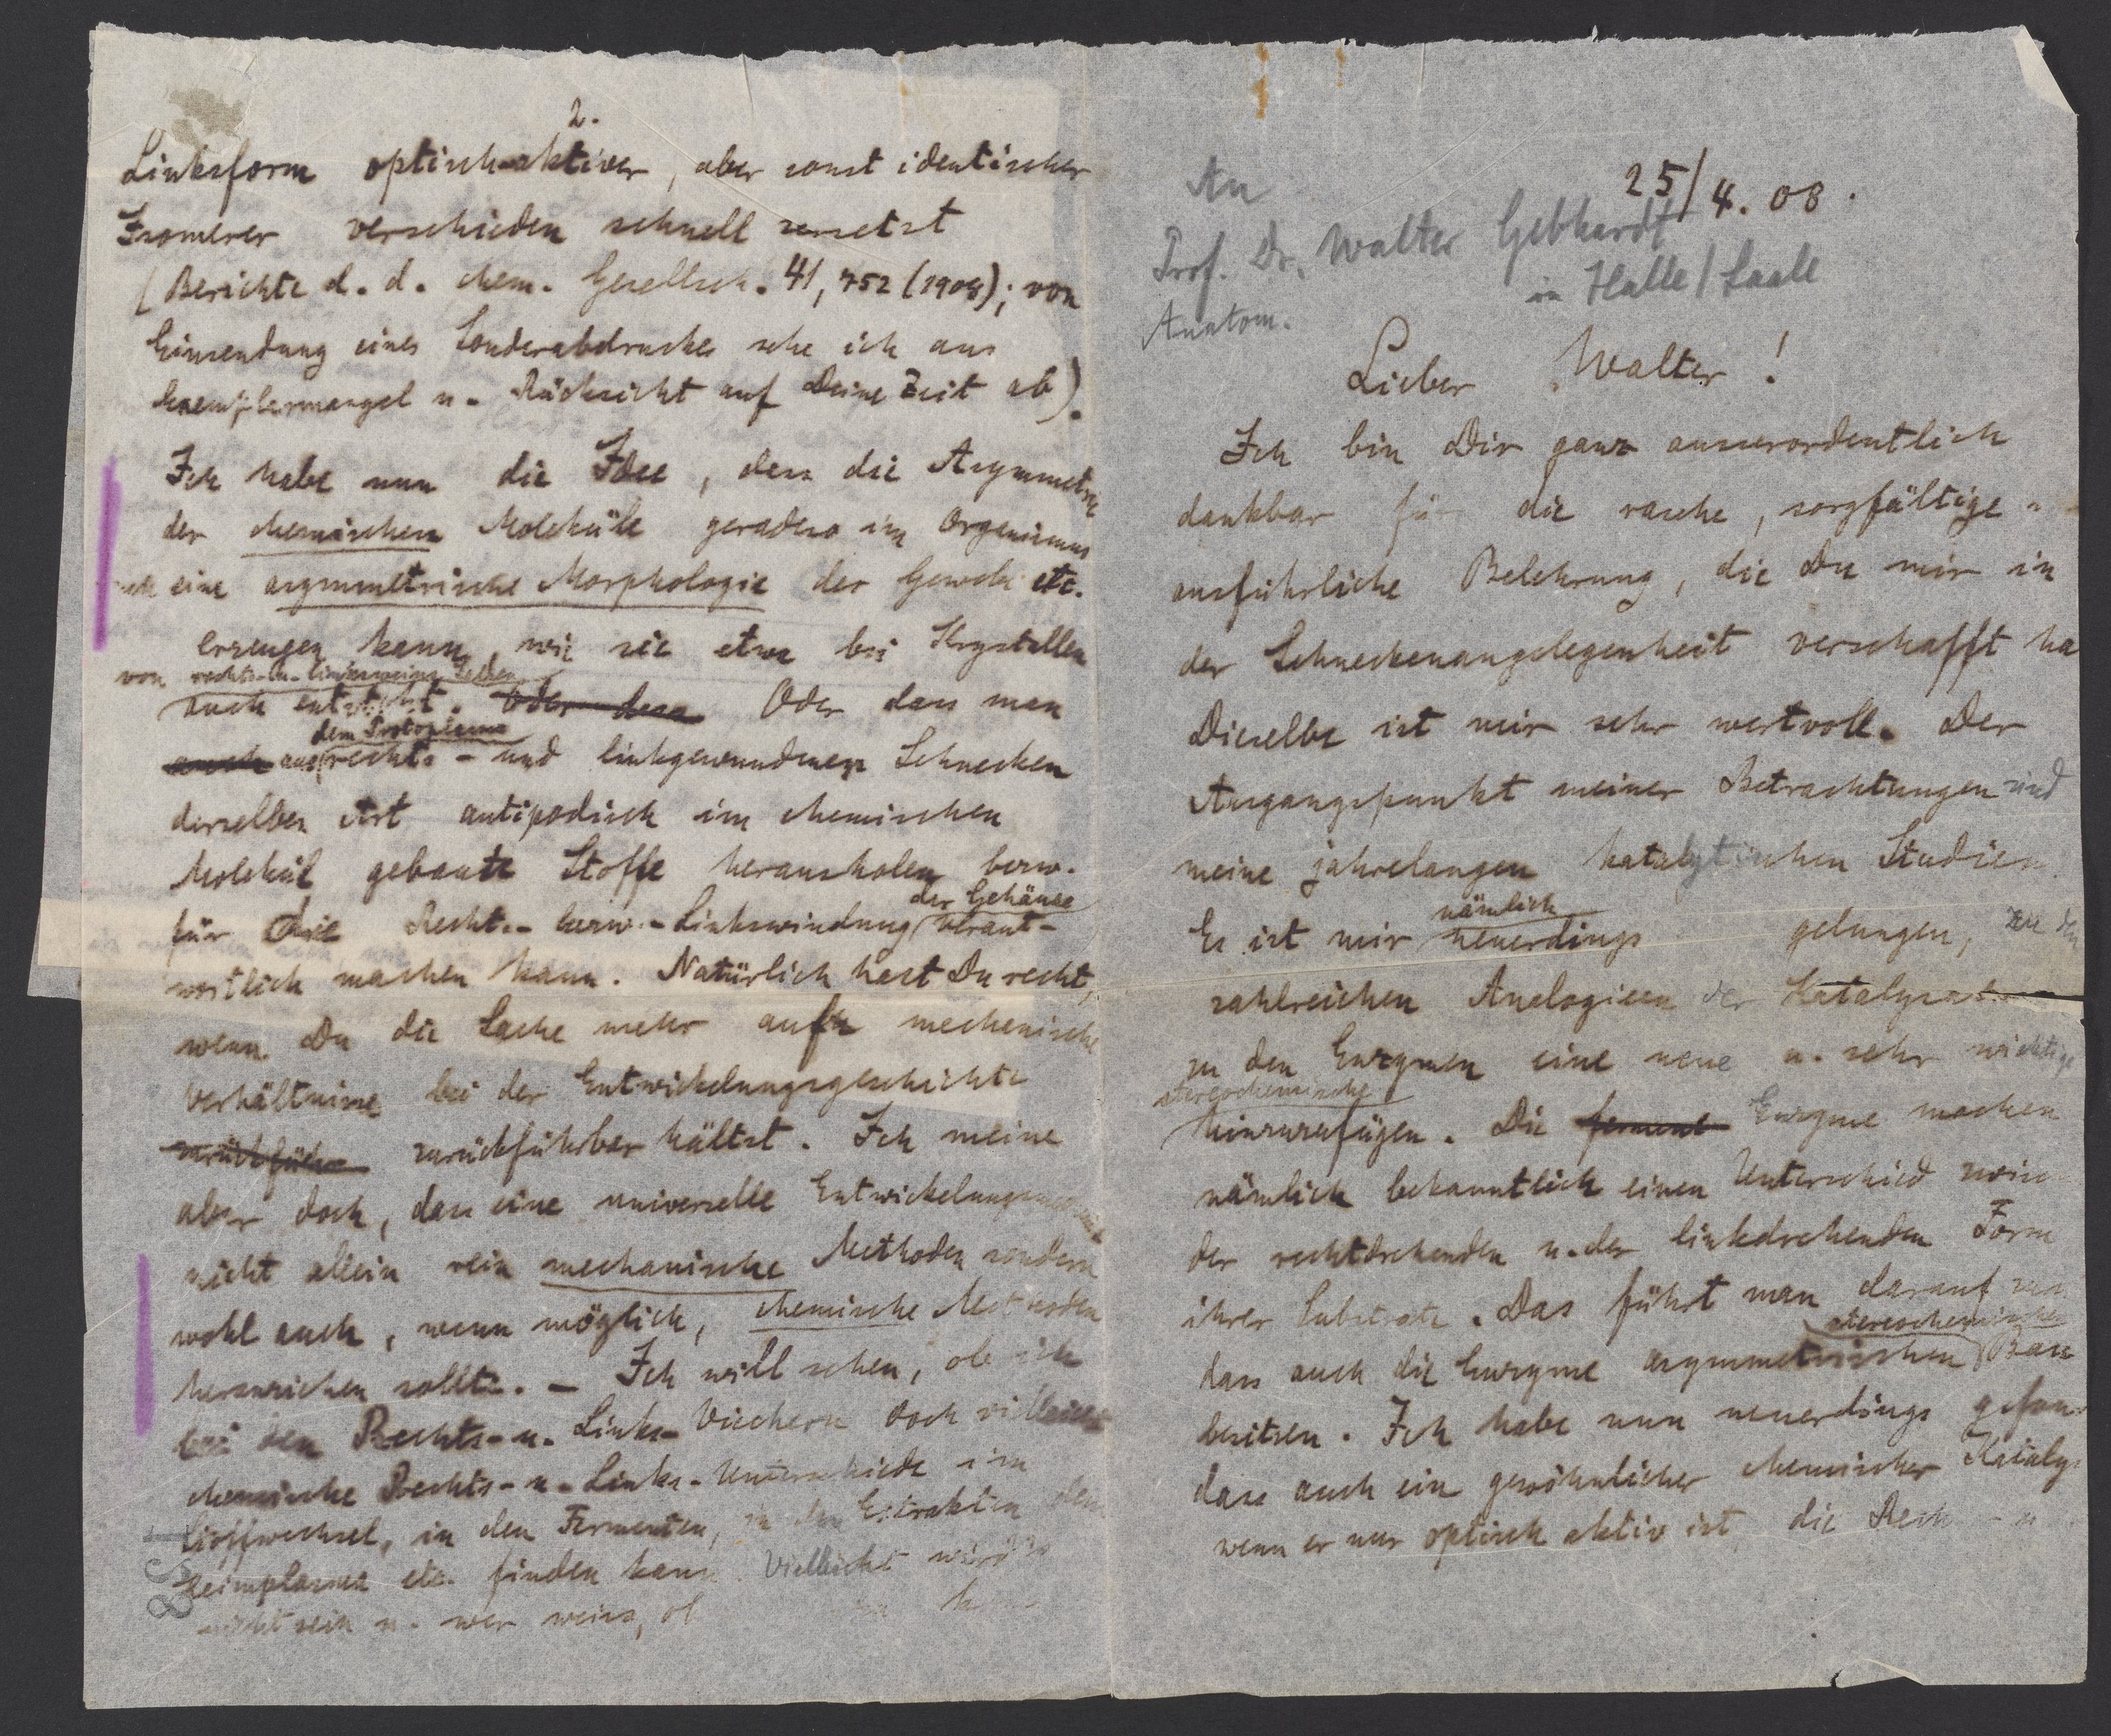 25/4. 08.
An
Prof. Dr. Walter Gebhardt
in Halle/Saale
Anatom.
Lieber Walter!
Ich bin Dir ganz ausserordentlich
dankbar für die rasche, sorgfältige u.
ausführliche Belehrung, die Du mir in
der Schneckenangelegenheit verschafft ha
Dieselbe ist mir sehr wertvoll. Der
Ausgangspunkt meiner Betrachtungen sind
meine jahrelangen katalytischen Studien.
nämlich
Es ist mir neuerdings gelungen, zu den
zahlreichen Analogieen der
zu den Enzymen eine neue u. sehr wichtige
stereochemische
hinzuzufügen. Die ferment Enzyme machen
nämlich bekanntlich einen Unterschied zwisc
der rechtdrehenden u. der linkdrehenden Form
ihrer Substrate. Das führt man darauf
stereochemischen
dass auch die Enzyme asymmetrischen Bau
besitzen. Ich habe nun neuerdings gefun
dass auch ein gewöhnlicher chemischer Kataly
wenn er nur optisch aktiv ist die Rech - u
2.
Linksform optisch-aktiver, aber sonst identischer
Isomerer verschieden schnell zersetzt
(Berichte d. d. chem. Gesellsch. 41, 752 (1908); von
Einsendung eines Sonderabdruckes sehe ich aus
Exemplarmangel u. Rücksicht auf Deine Zeit ab).
Ich habe nun die Idee, dass die Asymmetrie
der chemischen Moleküle geradeso im Organismus
auch eine asymmetrische Morphologie der Gewebe etc.
erzeugen kann, wie sie etwa bei Krystallen
von rechts- u. linksweins
auch entsteht. Oder dass Oder dass man
dem Protoplasma
auch aus rechts- und linkgewundenen Schnecken
derselben Art antipodisch im chemischen
Molekül gebaute Stoffe herausholen bezw.
der Gehäuse
für die Rechts- bezw.- Linkswindung verant-
wortlich machen kann. Natürlich hast Du recht,
wenn Du die Sache mehr auf mechanische
Verhältnisse bei der Entwickelungsgeschichte
zurückführ zurückführbar hältst. Ich meine
aber doch, dass eine universelle
nicht allein rein mechanische Methoden sondern
wohl auch, wenn möglich, chemische Methoden
heranziehen sollte. – Ich will sehen, ob ich
bei den Rechts- u. Links- Viechern doch vielleicht
chemische Rechts- u. Links- Unterschiede im
Stoffwechsel, in den Fermenten, in den Extrakten den
Keimplasmen etc. finden kann. Vielleicht wird's
nicht sein u. wer weiss, ob